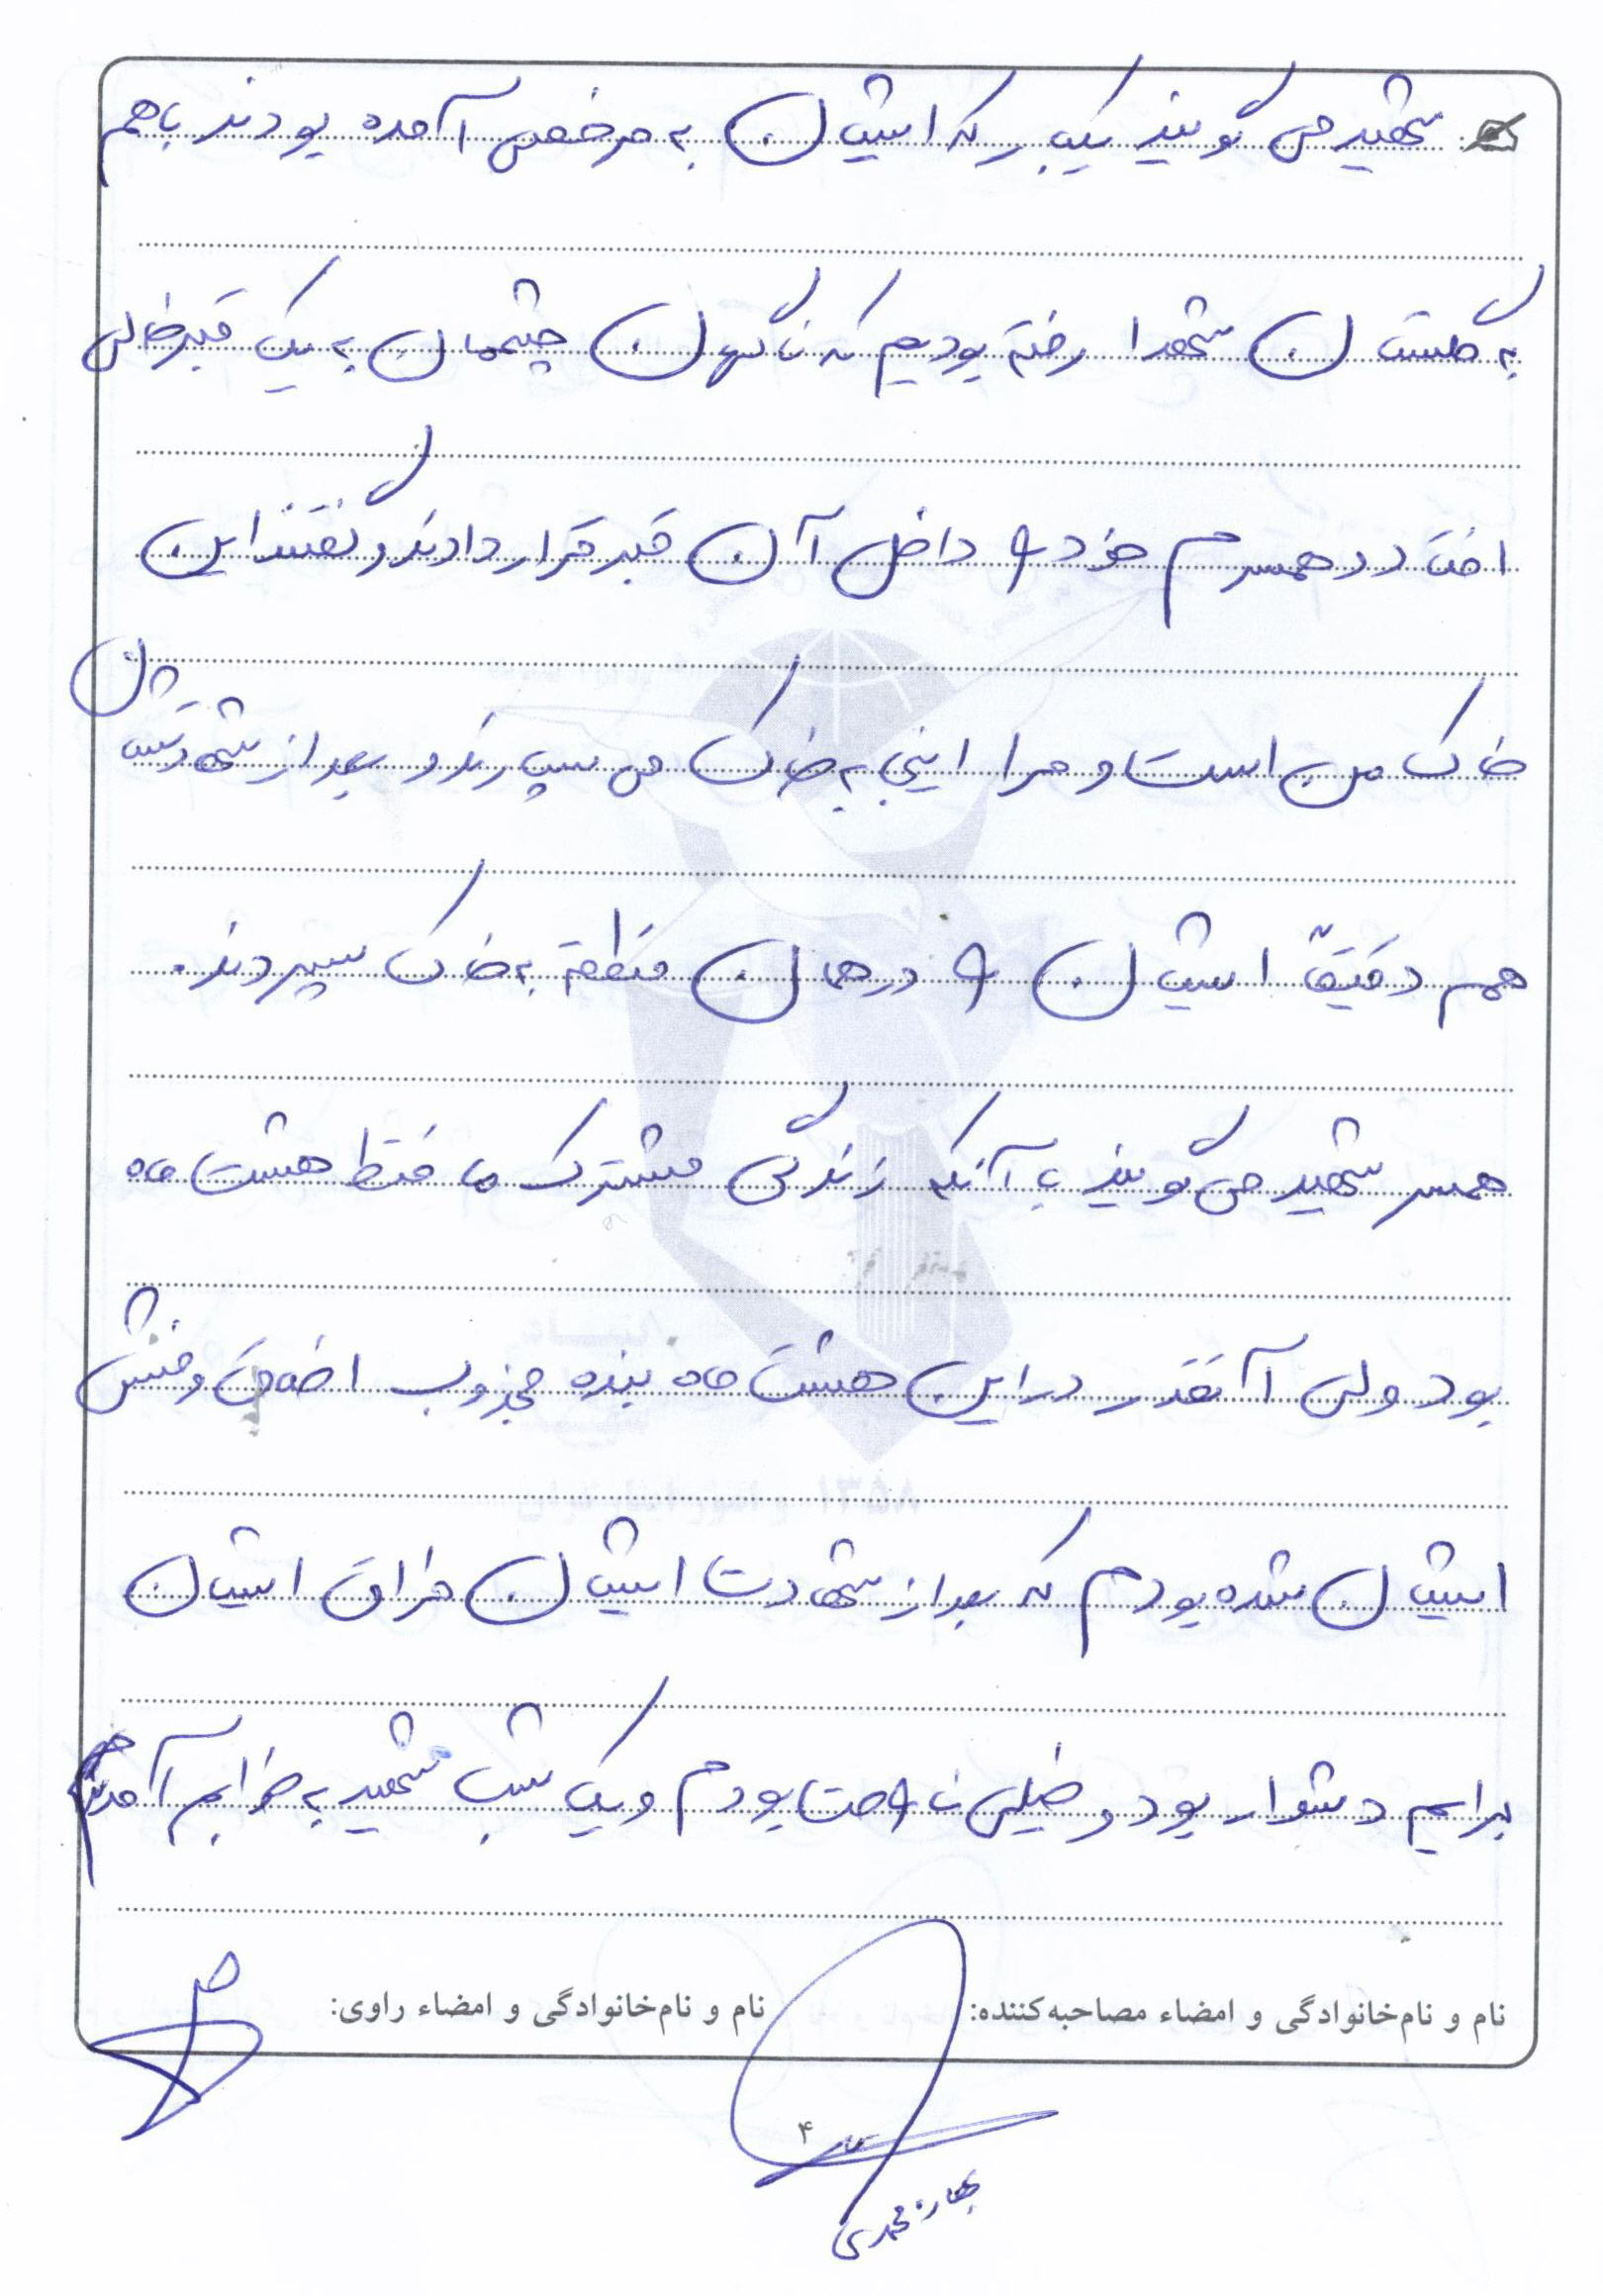 شهید می گویند یکبار که ایشان به مرخصی آمده بودند باهم
به گلستان شهدا رفته بودیم که ناگهان چشممان به یک قبر خالی
افتاد و همسرم خود را داخل آن قبر قرار دادند و گفتند این
خاک من است و مرا اینجا به خاک می سپارند و بعد از شهادتشان
هم دقیقاً ایشان را در همان منطقه به خاک سپردند.
همسر شهید می گویند با آنکه زندگی مشترک ما فقط هشت ماه
بود ولی آنقدر در این هشت ماه بنده مجذوب اخلاق و منش
ایشان شده بودم که بعد از شهادت ایشان فراق ایشان
برایم دشوار بود و خیلی ناراحت بودم و یک شب شهید به خوابم آمدند
نام و نام‌خانوادگی و امضاء مصاحبه‌کننده:
نام و نام‌خانوادگی و امضاء راوی:
۴
بهاره محمدی